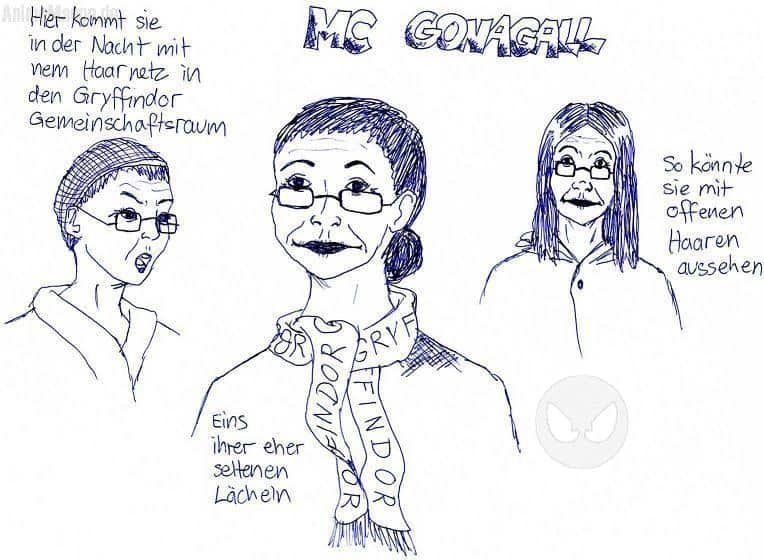 Animexx.de
Hier kommt sie
in der Nacht mit
nem Haarnetz in
den Gryffindor
Gemeinschaftsraum
MC GONAGALL
So könnte
sie mit
offenen
Haaren
aussehen
OR
GRYF
GRYFFINDOR
FFINDOR
Eins
ihrer eher
seltenen
Lächeln